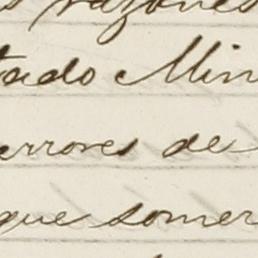 razones
tado Min
errores de
que somer